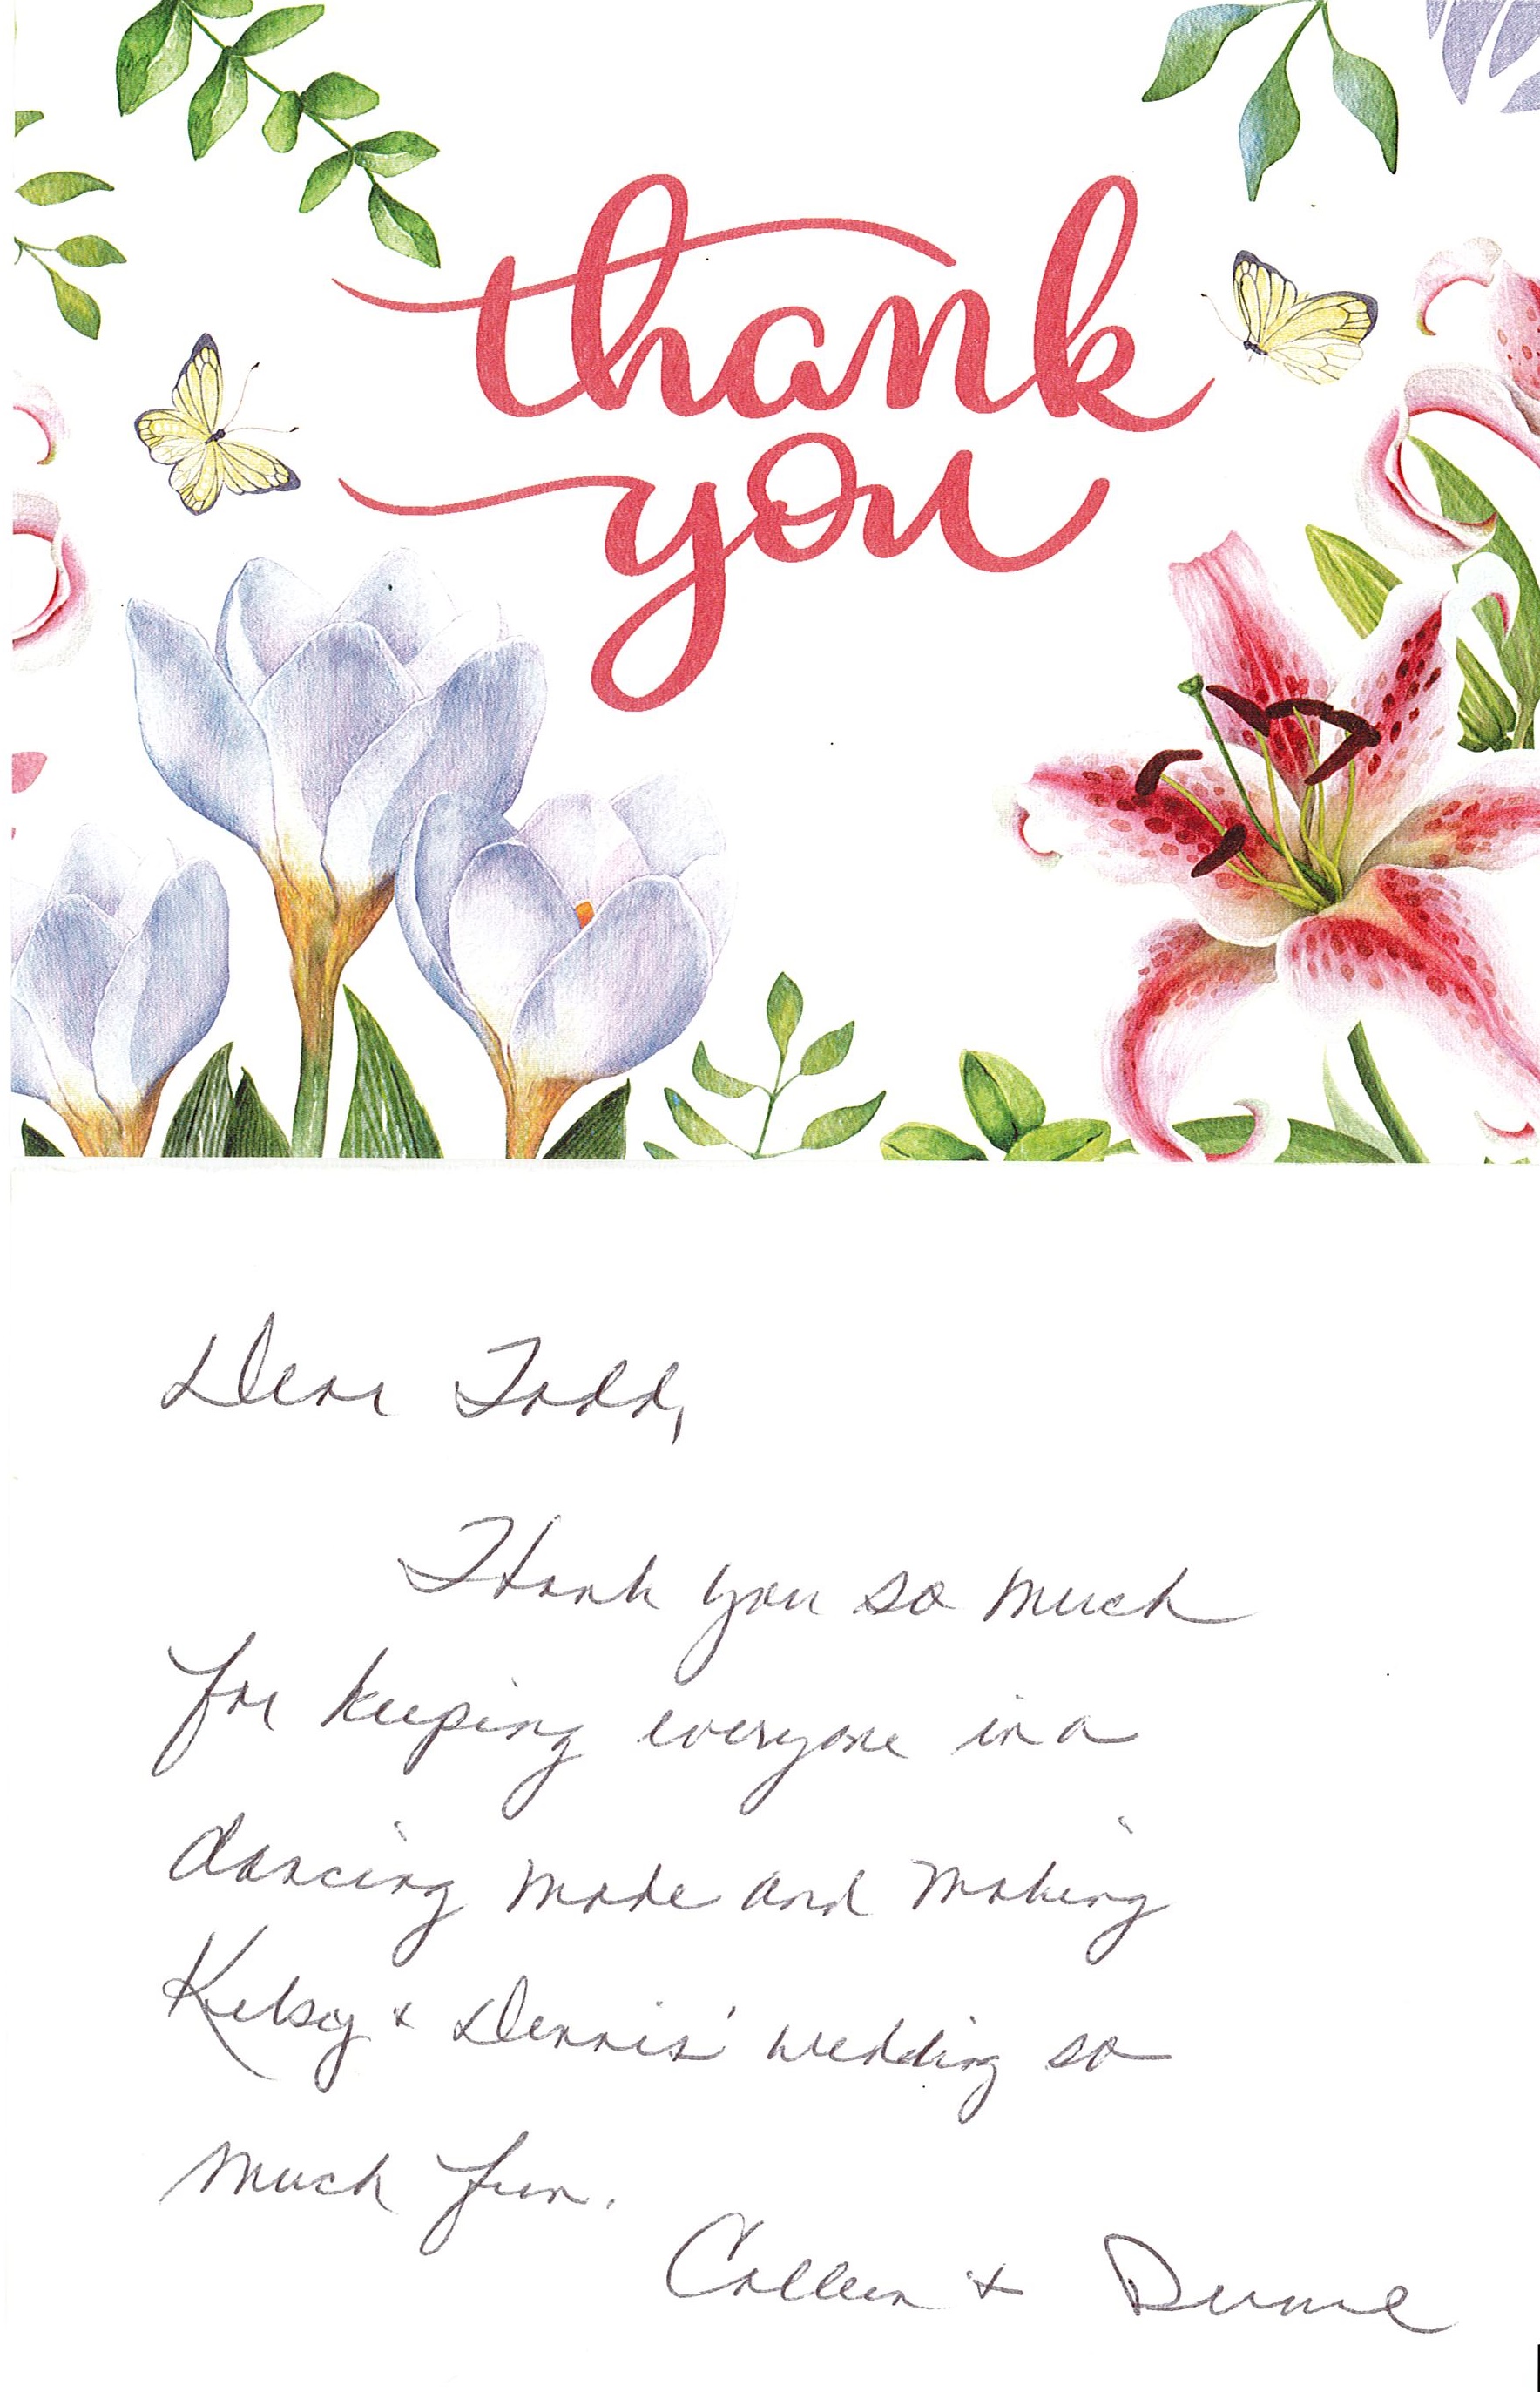 thank
you
Dear Todd,
Thank you so much
for keeping everyone in a
dancing mode and making
Kelsey + Dennis' wedding so
much fun.
Colleen + Duane